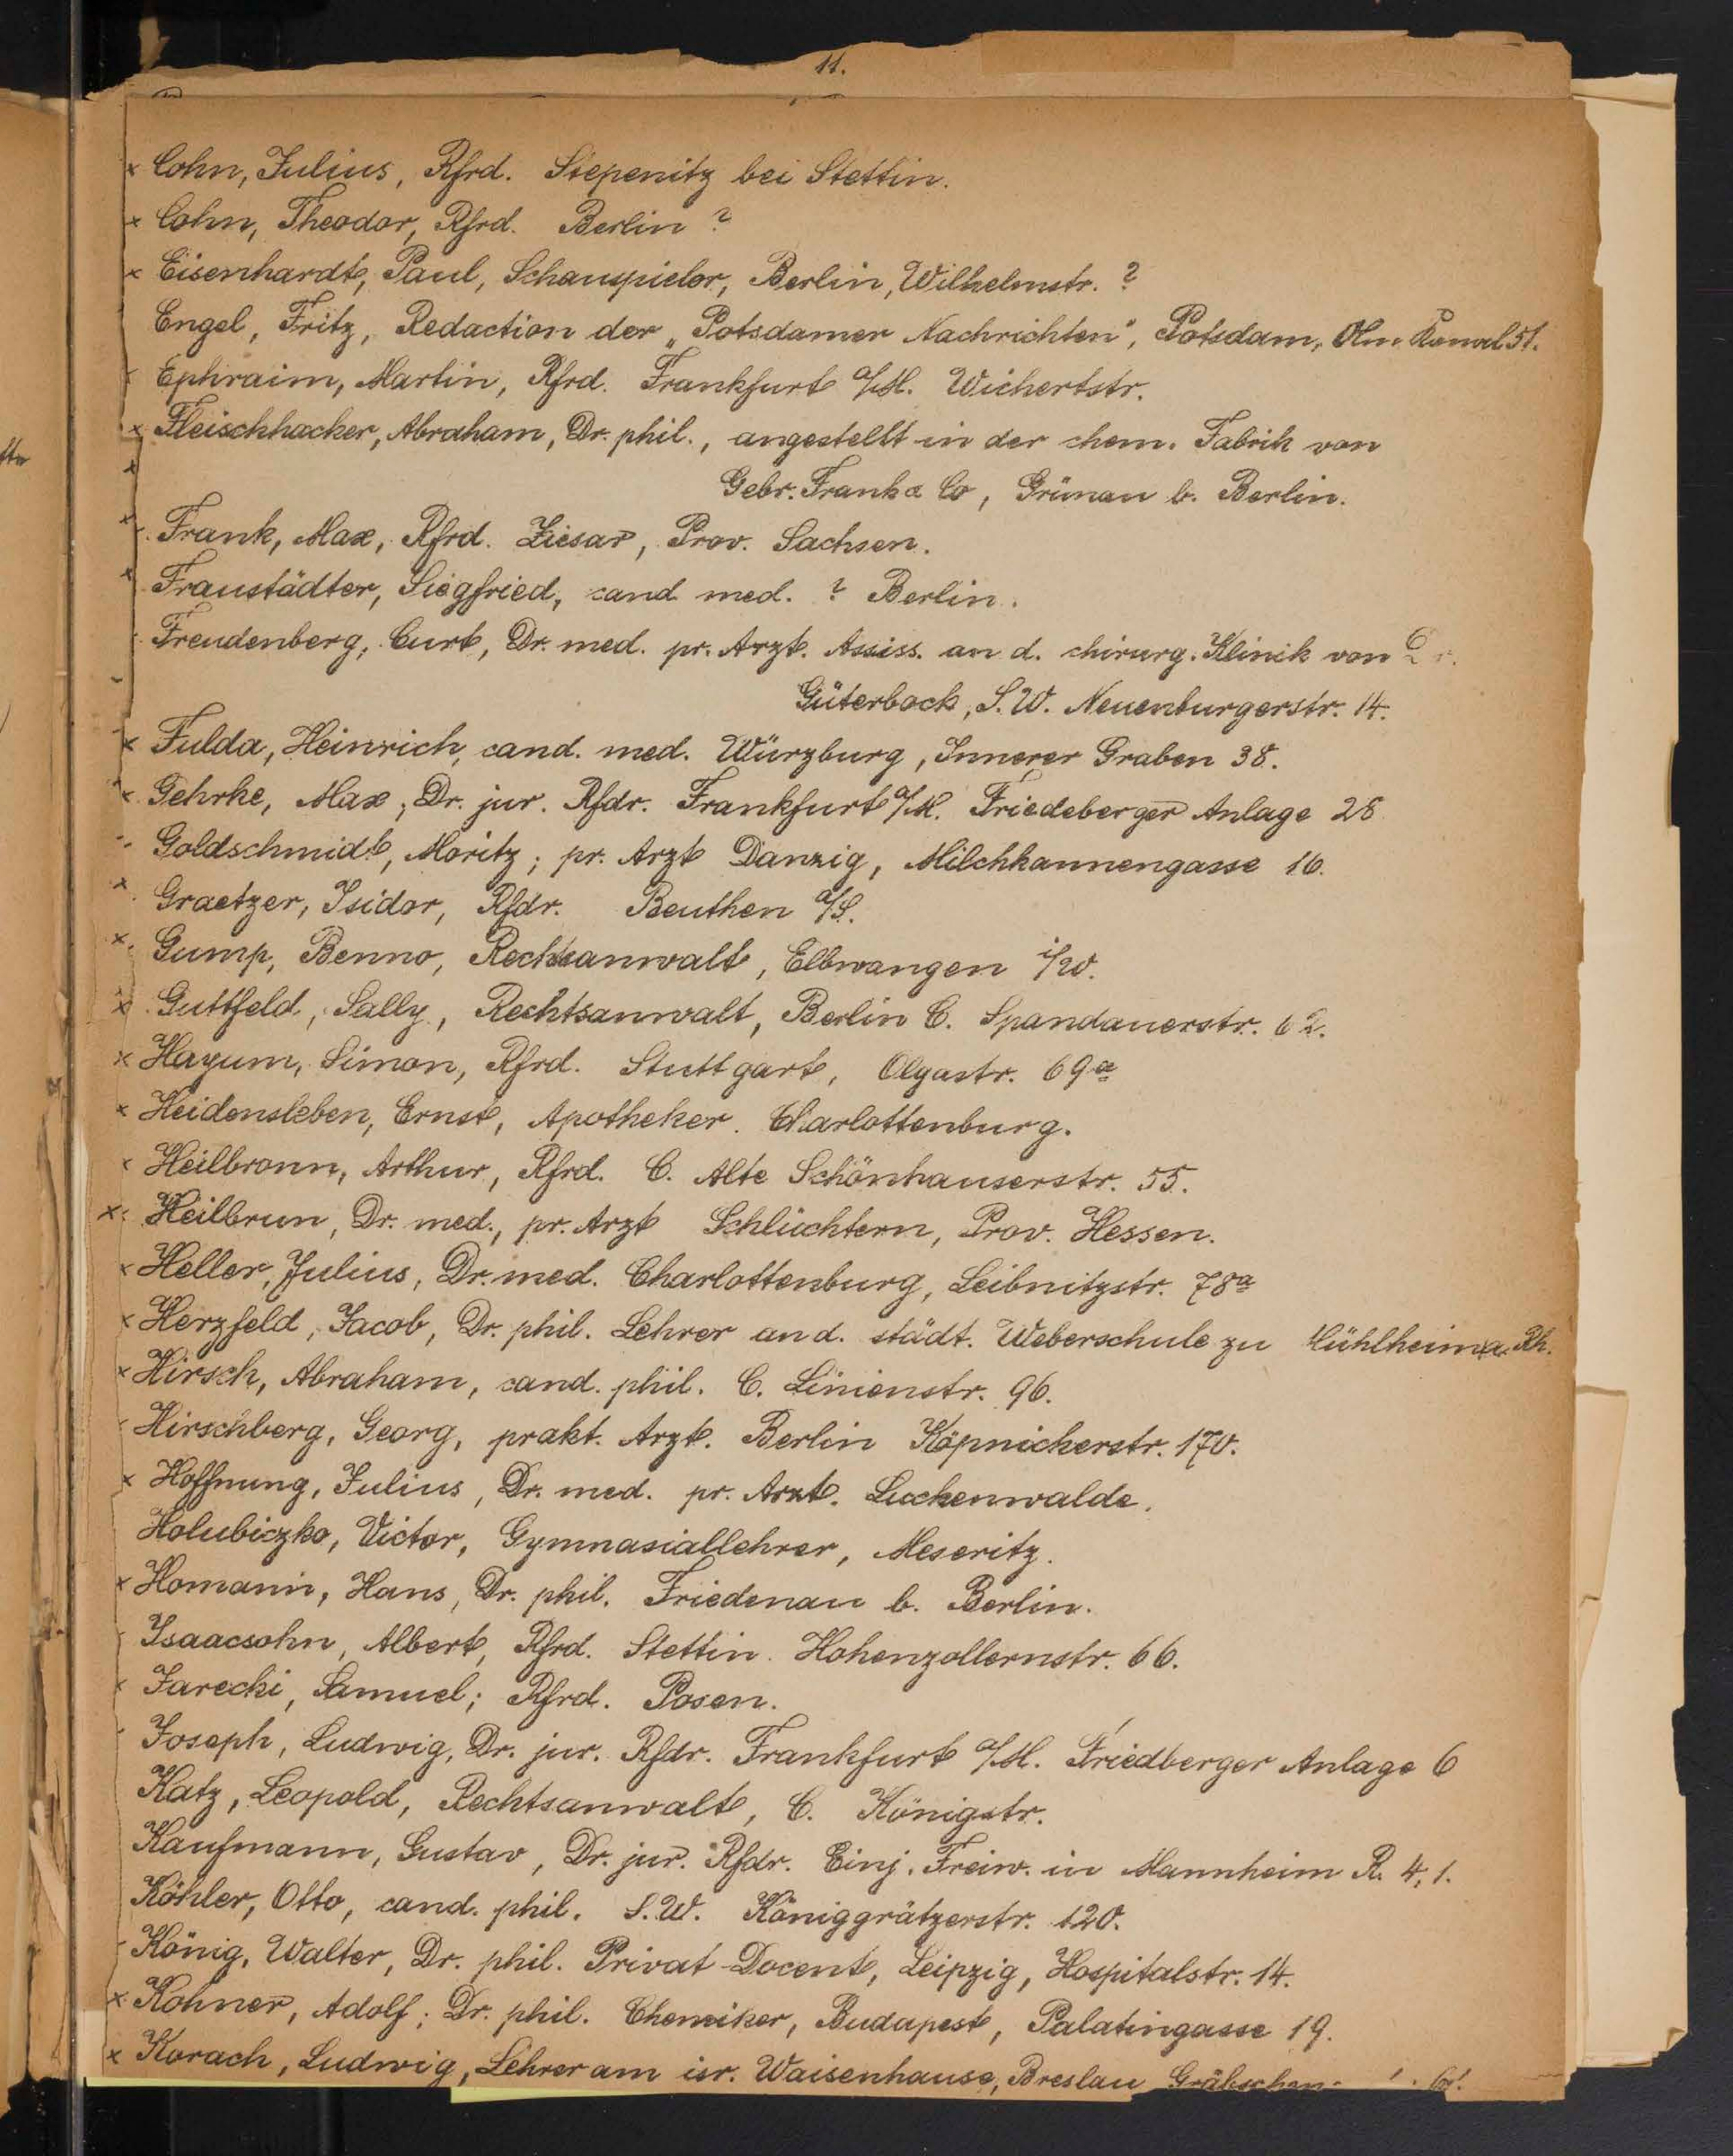 11.
x Cohn, Julius, Rfrd. Stepenitz bei Stettin.
x Cohn, Theodor, Rfrd. Berlin ?
x Eisenhardt, Paul, Schauspieler, Berlin, Wilhelmstr. ?
Engel, Fritz, Redaction der „Potsdamer Nachrichten", Potsdam, Am Kanal 51.
Ephraim, Martin, Rfrd. Frankfurt a/M. Wichertstr.
x Fleischhacker, Abraham, Dr. phil., angestellt in der chem. Fabrik von
Gebr. Frank & Co, Grünau b. Berlin.
x Frank, Max, Rfrd. Ziesar, Prov. Sachsen.
x Fraustädter, Siegfried, cand med. ? Berlin.
Freudenberg, Curt, Dr. med. pr. Arzt. Assiss. an d. chirurg. Klinik von Dr.
Güterbock, S.W. Neuenburgerstr. 14.
x Fulda, Heinrich, cand. med. Würzburg, Innerer Graben 38.
x Gehrke, Max, Dr. jur. Rfdr. Frankfurt a/M. Friedeberger Anlage 28
Goldschmidt, Moritz; pr. Arzt Danzig, Milchkannengasse 16.
x Graetzer, Isidor, Rfdr. Beuthen a/S.
x Gump, Benno, Rechtsanwalt, Ellwangen i/W.
x Guttfeld, Sally, Rechtsanwalt, Berlin C. Spandauerstr. 62.
x Hayum, Simon, Rfrd. Stuttgart, Olgastr. 69a
x Heidensleben, Ernst, Apotheker. Charlottenburg.
x Heilbronn, Arthur, Rfrd. C. Alte Schönhauserstr. 55.
x Heilbrun, Dr. med., pr. Arzt Schlüchtern, Prov. Hessen.
x Heller, Julius, Dr. med. Charlottenburg, Leibnitzstr. 78a
x Herzfeld, Jacob, Dr. phil. Lehrer an d. städt. Weberschule zu Mühlheim a. Rh.
x Hirsch, Abraham, cand. phil. C. Linienstr. 96.
Hirschberg, Georg, prakt. Arzt. Berlin Köpnickerstr. 170.
x Hoffnung, Julius, Dr. med. pr. Arzt. Luckenwalde.
Holubiczko, Victor, Gymnasiallehrer, Meseritz.
x Homann, Hans, Dr. phil. Friedenau b. Berlin.
Isaacsohn, Albert, Rfrd. Stettin. Hohenzollernstr. 66.
x Jarecki, Samuel; Rfrd. Posen.
Joseph, Ludwig, Dr. jur. Rfdr. Frankfurt a/M. Friedberger Anlage 6
Katz, Leopold, Rechtsanwalt, C. Königstr.
Kaufmann, Gustav, Dr. jur. Rfdr. Einj. Freiw. in Mannheim R. 4, 1.
Köhler, Otto, cand. phil. S.W. Königgrätzerstr. 120.
König, Walter, Dr. phil. Privat-Docent, Leipzig, Hospitalstr. 14.
x Kohner, Adolf; Dr. phil. Chemiker, Budapest, Palatingasse 19.
x Korach, Ludwig, Lehrer am isr. Waisenhause, Breslau